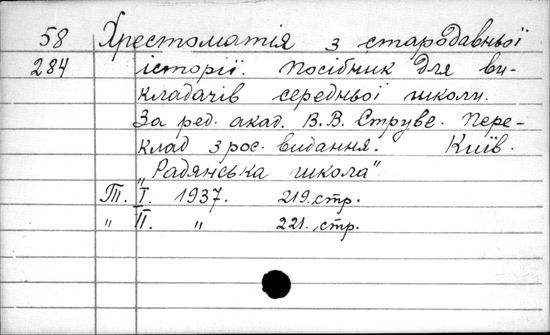 58 Хрестоматія з стародавньої
284 історії. Посібник для ви-
кладачів середньої школи.
За ред. акад. В.В. Струве. Пере-
клад з рос. видання. Київ.
„Радянська школа"
Т. І. 1937. 219.стр.
„ ІІ. „ 221.стр.